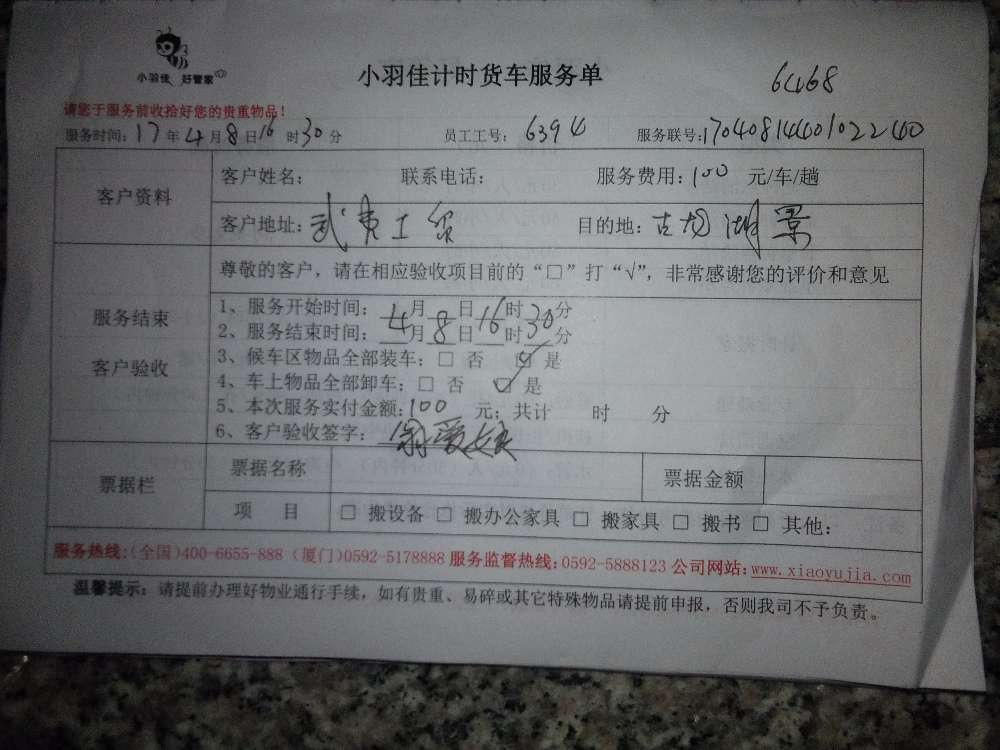 小羽佳 好管家
小羽佳计时货车服务单
6468
请您于服务前收拾好您的贵重物品！
服务时间：17年4月8日16时30分 员工工号：6394 服务联号：17040814401022240
客户资料
客户姓名： 联系电话： 服务费用：100 元/车/趟
客户地址：武夷工贸 目的地：古龙湖景
服务结束
客户验收
尊敬的客户，请在相应验收项目前的“□”打“√”，非常感谢您的评价和意见
1、服务开始时间：4月8日16时30分
2、服务结束时间：月 日 时 分
3、候车区物品全部装车：□ 否 ☑ 是
4、车上物品全部卸车：□ 否 ☑ 是
5、本次服务实付金额：100 元；共计 时 分
6、客户验收签字：
票据栏
票据名称 票据金额
项 目 □ 搬设备 □ 搬办公家具 □ 搬家具 □ 搬书 □ 其他：
服务热线：（全国）400-6655-888（厦门）0592-5178888 服务监督热线：0592-5888123 公司网站：www.xiaoyujia.com
温馨提示：请提前办理好物业通行手续，如有贵重、易碎或其它特殊物品请提前申报，否则我司不予负责。